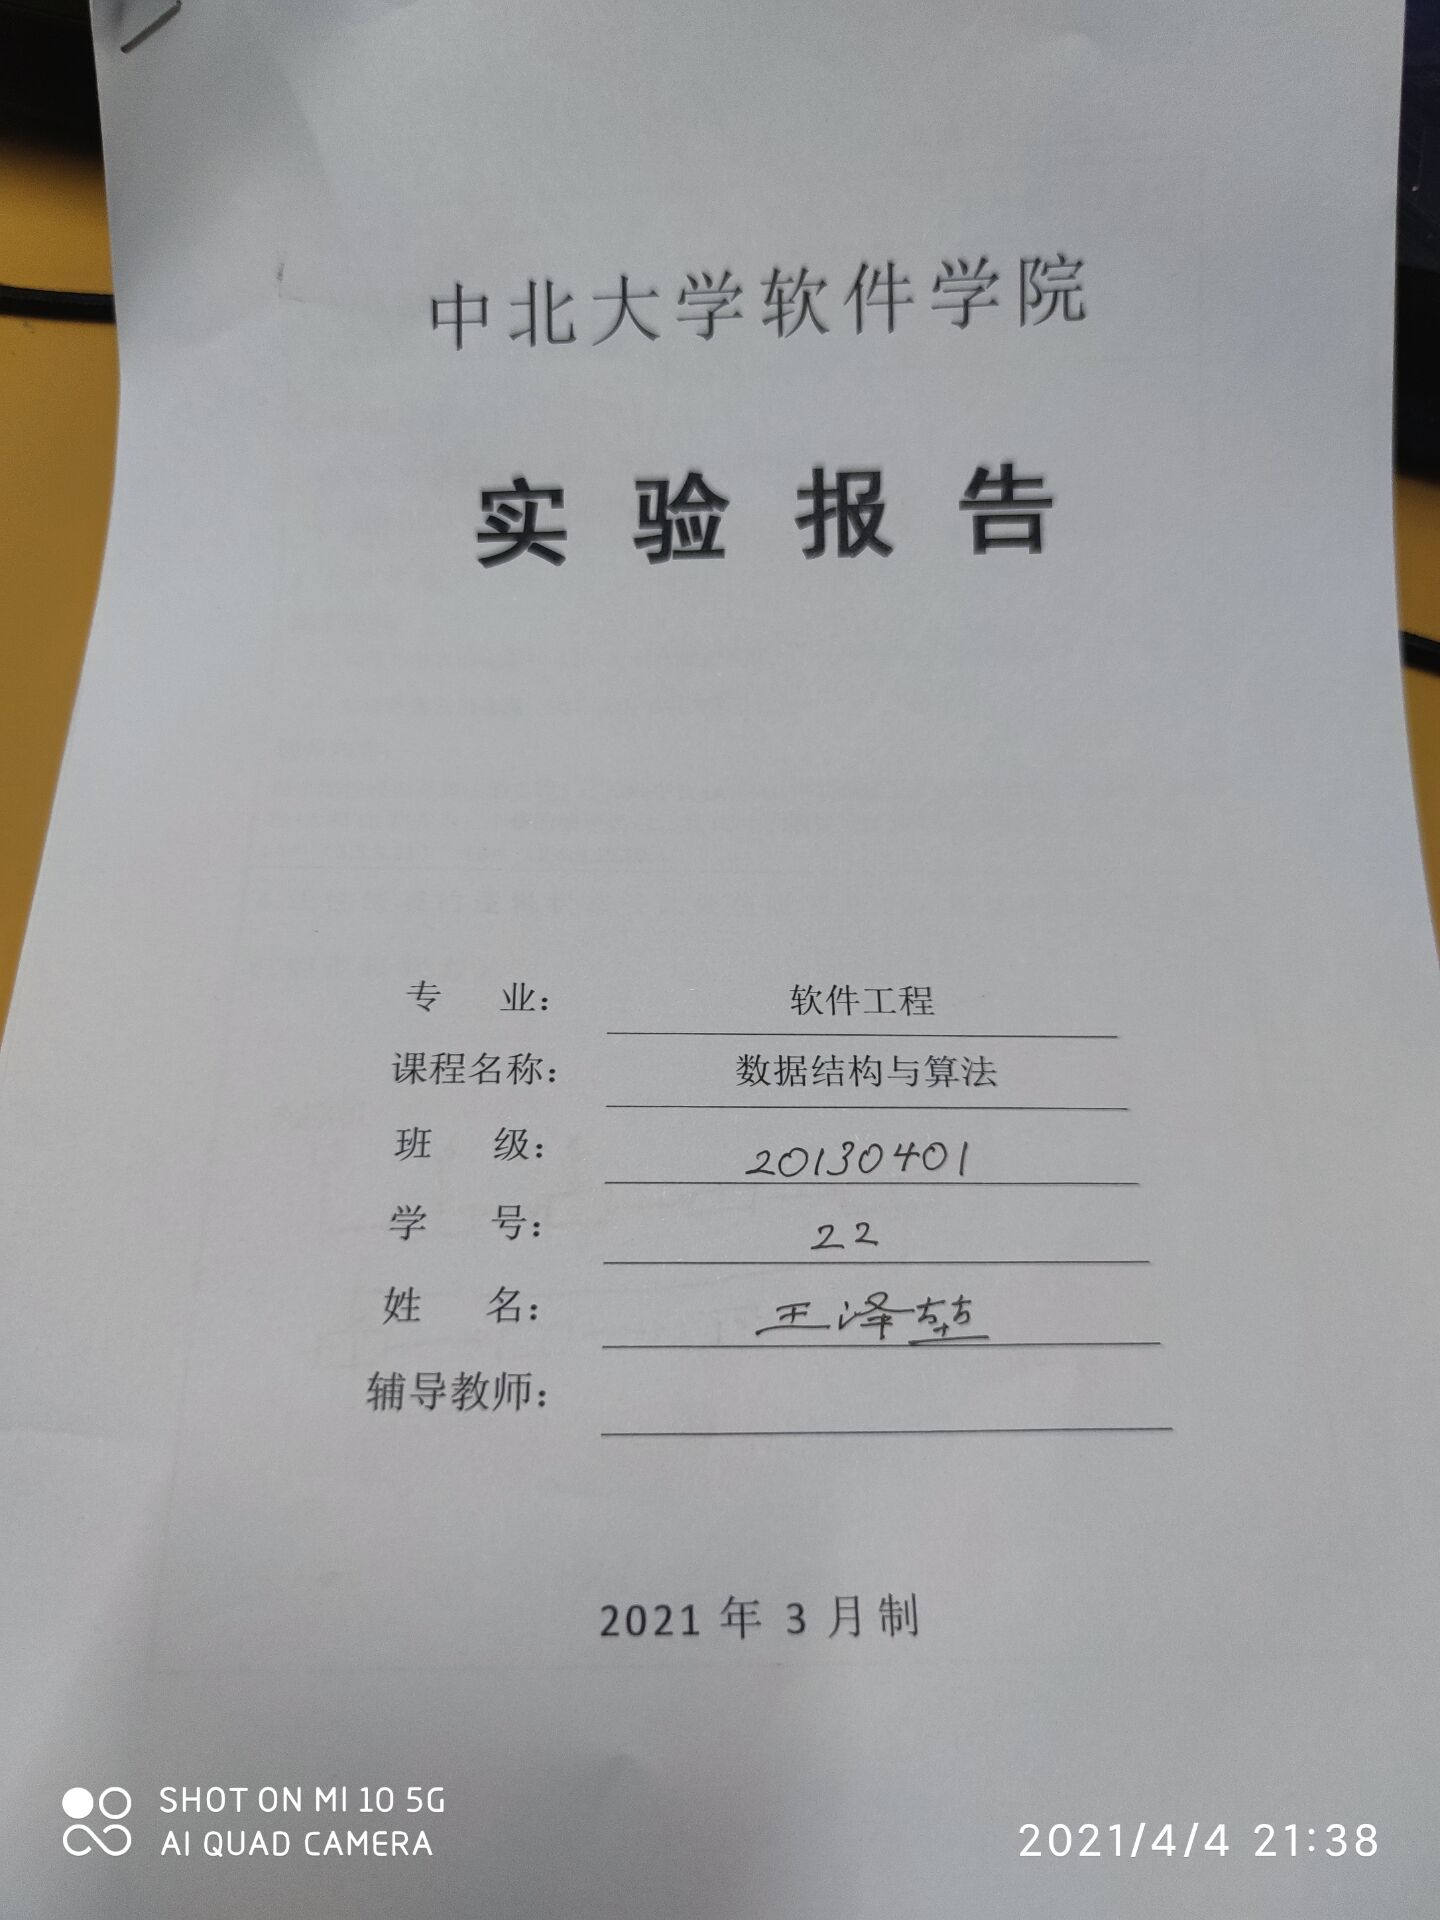 中北大学软件学院
实验报告
专 业: 软件工程
课程名称: 数据结构与算法
班 级: 20130401
学 号: 22
姓 名: 王泽喆
辅导教师:
2021 年 3 月制
SHOT ON MI 10 5G
AI QUAD CAMERA
2021/4/4 21:38